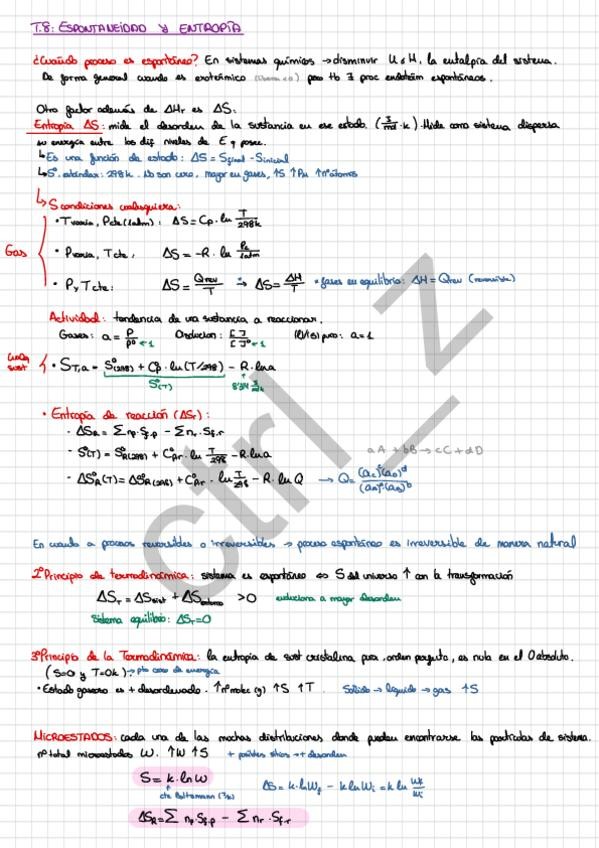 T.8: ESPONTANEIDAD Y ENTROPÍA
¿Cuándo proceso es espontáneo? En sistemas químicos → disminuir U o H, la entalpía del sistema.
De forma general cuando es exotérmico pero tb ∃ proc endotérm espontáneos.
Otro factor además de ΔHr es ΔS:
Entropía ΔS: mide el desorden de la sustancia en ese estado. (J/mol·k). Mide como sistema dispersa
su energía entre los dif niveles de E q posee.
↳ Es una función de estado: ΔS = Sfinal - Sinicial
↳ S° estándar: 298k. No son cero, mayor en gases, ↑S ↑Pm ↑nº átomos
↳ S condiciones cualesquiera:
Gas
• T varía, P cte (1atm): ΔS = Cp · ln T/298k
• P varía, T cte: ΔS = -R · ln P2/1atm
• P y T cte: ΔS = Qrev/T → ΔS = ΔH/T * fases en equilibrio: ΔH = Qrev (reversible)
Actividad: tendencia de una sustancia a reaccionar.
Gases: a = P/P° ←1 Disolución: [ ]/[ ]° ←1 (l)/(s) puro: a=1
Cualq sust
• ST,a = S°(298) + C°p · ln (T/298) - R · ln a
S°(T) 8'314
• Entropía de reacción (ΔSr):
- ΔSR = Σ np · Sf.p - Σ nr · Sf.r
- S°(T) = S°R(298) + C°pr · ln T/298 - R · ln a
aA + bB → cC + dD
- ΔS°R (T) = ΔS°R(298) + C°pr · ln T/298 - R · ln Q → Q = (ac)^c (aD)^d/(aA)^a (aB)^b
En cuanto a procesos reversibles o irreversibles → proceso espontáneo es irreversible de manera natural
2º Principio de termodinámica: sistema es espontáneo ⇔ S del universo ↑ con la transformación
ΔSr = ΔSsist + ΔSentorno > 0 evoluciona a mayor desorden
Sistema equilibrio: ΔSr = 0
3º Principio de la Termodinámica: la entropía de sust cristalina pura, orden perfecto, es nula en el 0 absoluto.
(S=0 y T=0k) → pto cero de energía
• Estado gaseoso es + desordenado. ↑nº molec (g) ↑S ↑T. Sólido → líquido → gas ↑S
MICROESTADOS: cada una de las muchas distribuciones donde pueden encontrarse las partículas de sistema.
nº total microestados W. ↑W ↑S + posibles sitios → + desorden
S = k · ln W ΔS = k ln Wf - k ln Wi = k ln Wf/Wi
↑ cte Boltzmann (J/k)
ΔSR = Σ np Sf.p - Σ nr · Sf.r
ctrl_z